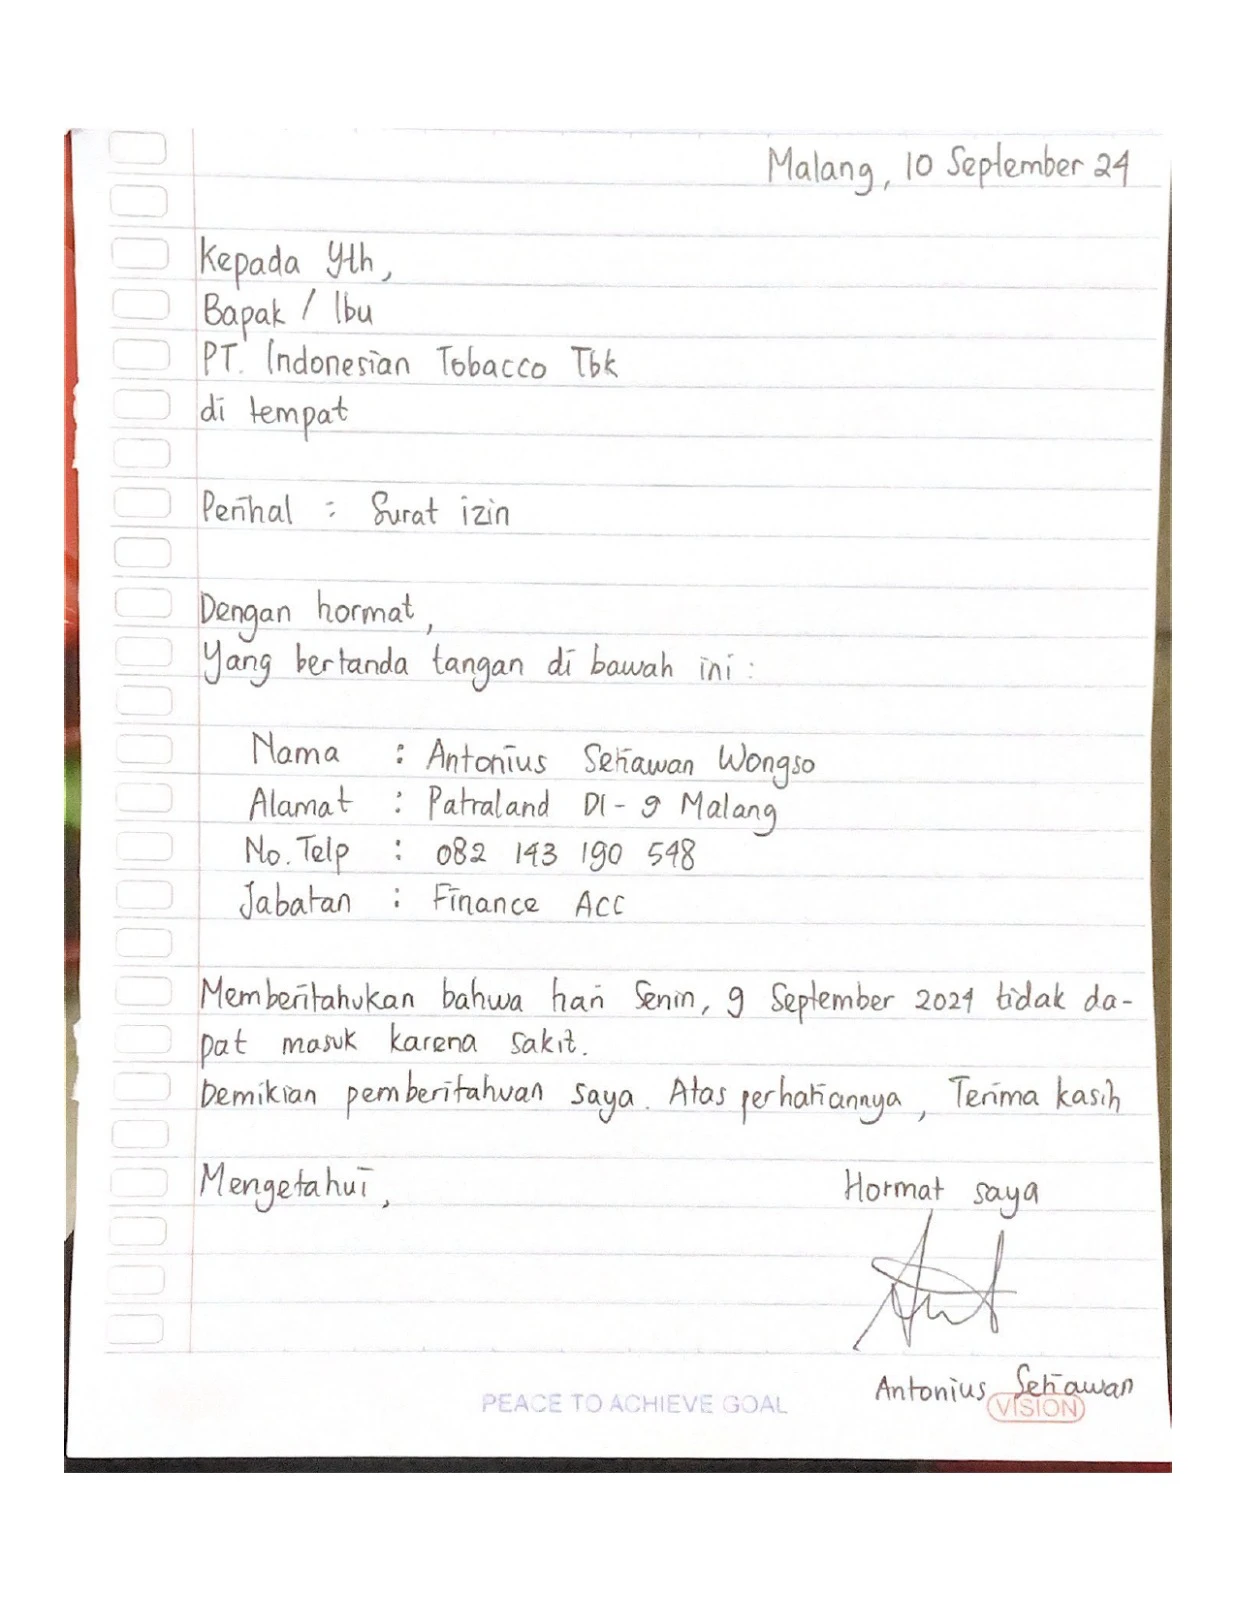 Malang, 10 September 24
Kepada Yth,
Bapak / Ibu
PT. Indonesian Tobacco Tbk
di tempat
Perihal : Surat izin
Dengan hormat,
Yang bertanda tangan di bawah ini :
Nama : Antonius Setiawan Wongso
Alamat : Patraland D1 - 9 Malang
No. Telp : 082 143 190 548
Jabatan : Finance Acc
Memberitahukan bahwa hari Senin, 9 September 2024 tidak da-
pat masuk karena sakit.
Demikian pemberitahuan saya. Atas perhatiannya, Terima kasih
Mengetahui, Hormat saya
Antonius Setiawan
PEACE TO ACHIEVE GOAL VISION